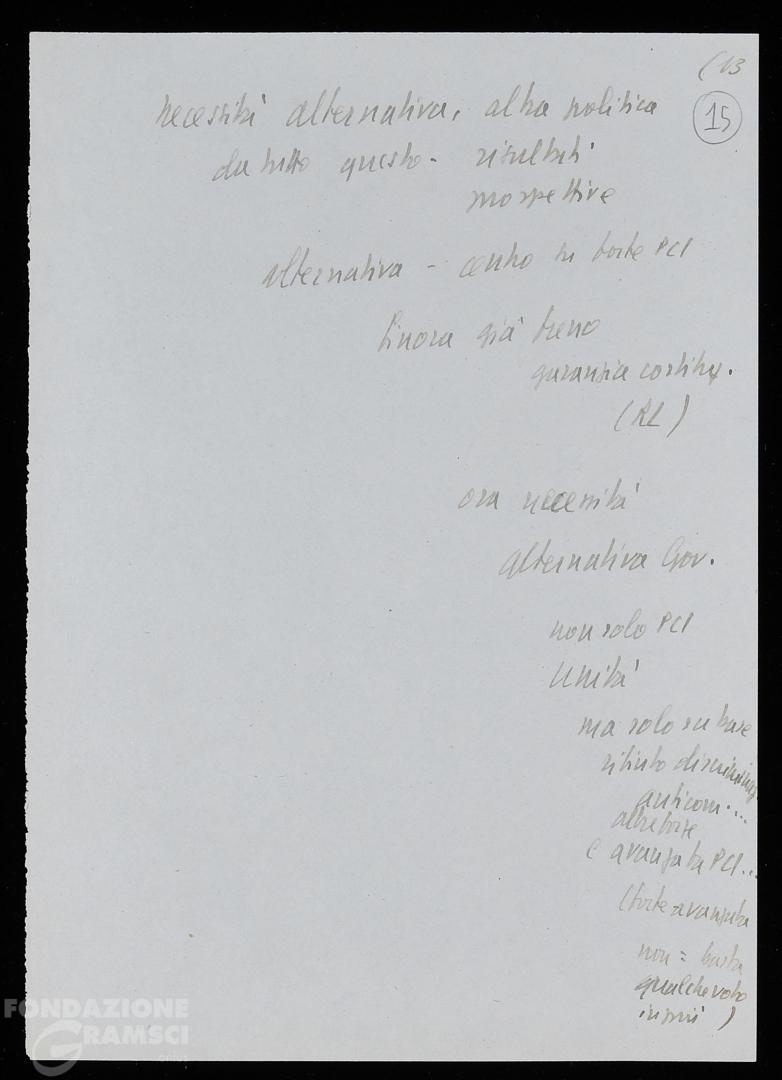 (13
15
necessità alternativa, altra politica
da tutto questo - risultati
prospettive
alternativa - centro su forte PCI
finora già freno
garanzia costituz.
(RL)
ora necessità
alternativa Gov.
non solo PCI
Unità
ma solo su base
rifiuto discriminaz.
anticom....
altre forze
e avanzata PCI...
(forte avanzata
non = basta
qualche voto
in più)
FONDAZIONE
GRAMSCI
onlus